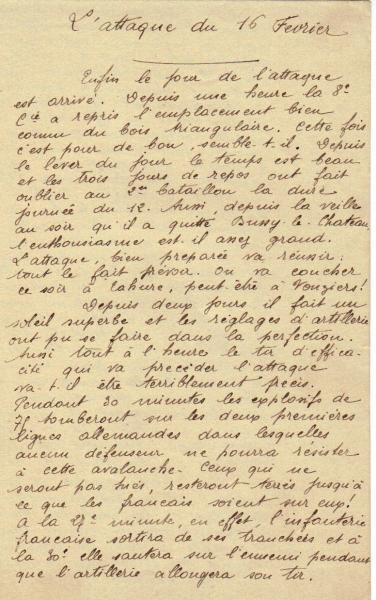 L'attaque du 16 Fevrier
Enfin le jour de l'attaque
est arrivé. Depuis une heure la 8e
Cie a repris l'emplacement bien
connu du bois triangulaire. Cette fois
c'est pour de bon, semble-t-il. Depuis
le lever du jour le temps est beau
et les trois jours de repos ont fait
oublier au 2me bataillon la dure
journée du 12. Aussi, depuis la veille
au soir qu'il a quitté Bussy-le-Chateau,
l'enthousiasme est-il assez grand.
L'attaque, bien preparée va réussir;
tout le fait prévoir. On va coucher
ce soir à Tahure, peut-être à Vouziers!
Depuis deux jours il fait un
soleil superbe et les réglages d'artillerie
ont pu se faire dans la perfection.
Aussi tout à l'heure le tir d'effica-
cité qui va precéder l'attaque
va-t-il être terriblement precis.
Pendant 30 minutes les explosifs de
75 tomberont sur les deux premières
lignes allemandes dans lesquelles
aucun défenseur ne pourra résister
à cette avalanche. Ceux qui ne
seront pas tués, resteront terrés jusqu'à
ce que les francais soient sur eux!
A la 27e minute, en effet, l'infanterie
francaise sortira de ses tranchées et à
la 30e elle sautera sur l'ennemi pendant
que l'artillerie allongera son tir.